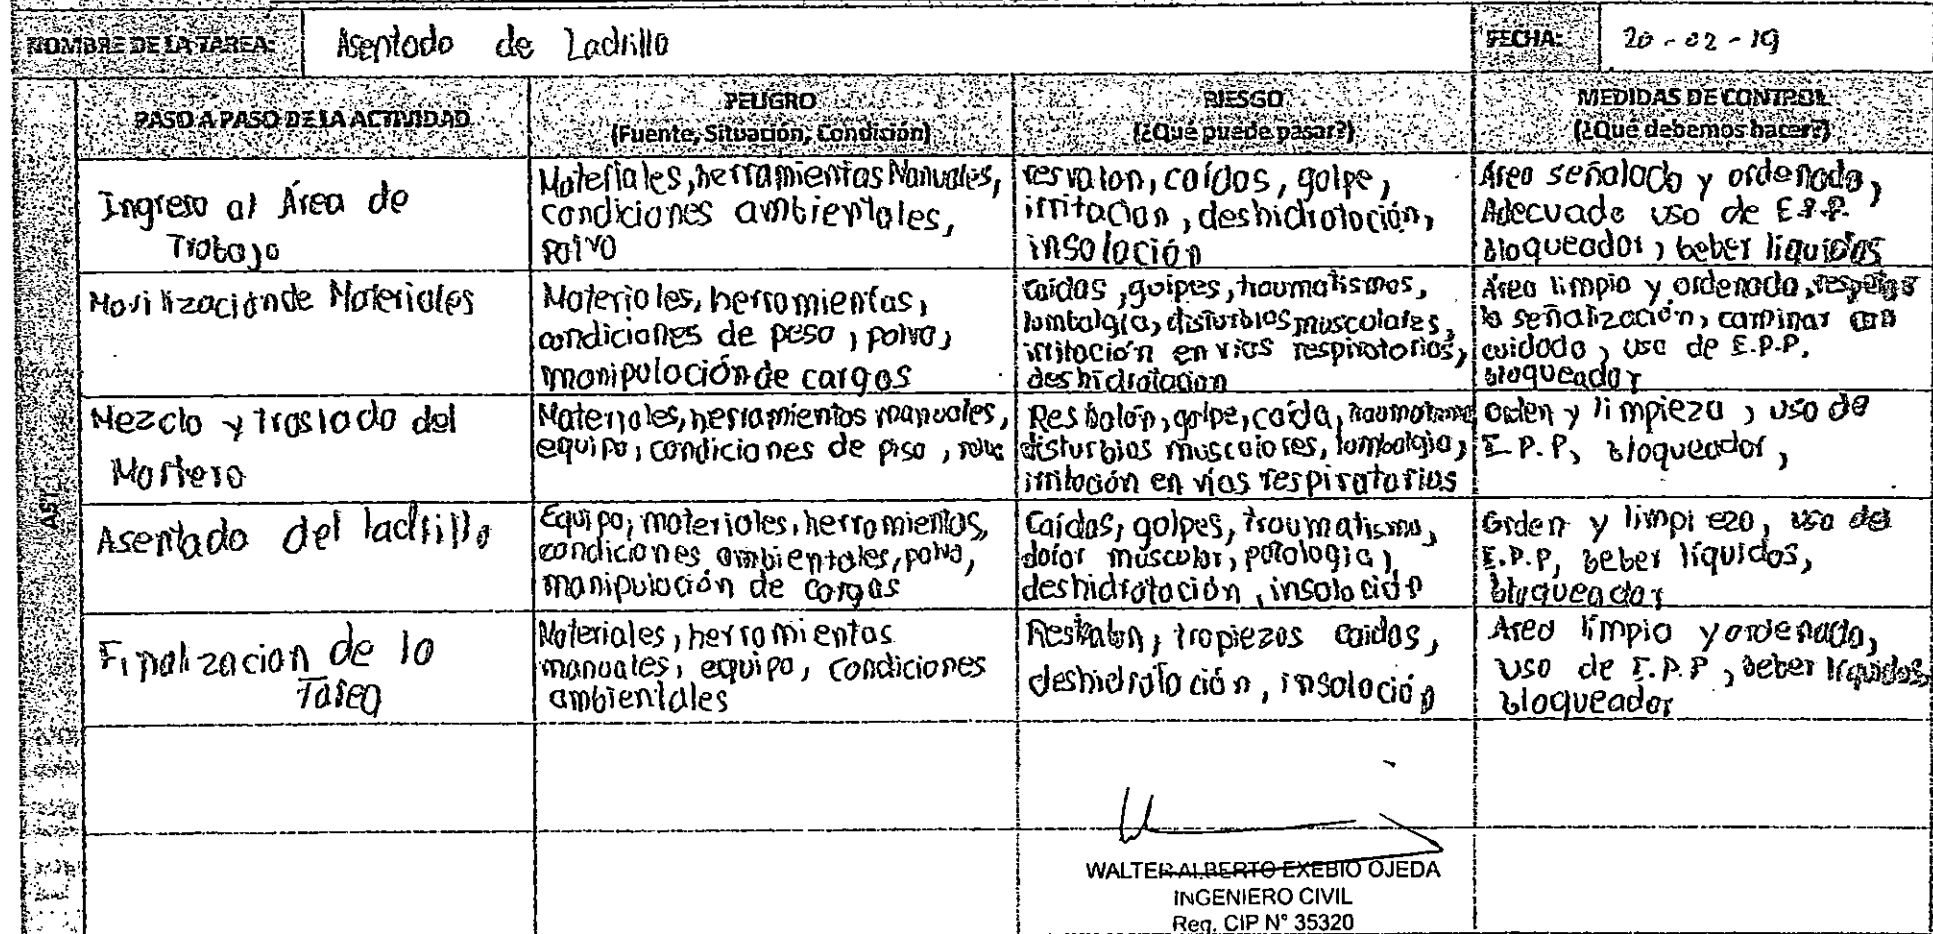 NOMBRE DE LA TAREA: Asentado de Ladrillo FECHA: 20-02-19
PASO A PASO DE LA ACTIVIDAD
PELIGRO
(Fuente, Situación, Condición)
RIESGO
(¿Qué puede pasar?)
MEDIDAS DE CONTROL
(¿Qué debemos hacer?)
AST
Ingreso al Área de
Trabajo
Materiales, herramientas Manuales,
condiciones ambientales,
polvo
resvalon, caídas, golpe,
irritacion, deshidratación,
insolación
Area señalado y ordenado,
Adecuado uso de E.P.P.
bloqueador, beber liquidos
Movilización de Materiales
Materiales, herramientas,
condiciones de peso, polvo,
manipulación de cargas
caidas, golpes, traumatismos,
lumbalgia, disturbios musculares,
irritación en vias respiratorias,
deshidratacion
Area limpio y ordenado, respetar
la señalización, caminar con
cuidado, uso de E.P.P.
bloqueador
Mezcla y traslado del
Mortero
Materiales, herramientas manuales,
equipo, condiciones de piso,
Resbalon, golpe, caída,
disturbios musculares, lumbalgia,
irritación en vías respiratorias
orden y limpieza, uso de
E.P.P, bloqueador,
Asentado del ladrillo
Equipo, materiales, herramientas,
condiciones ambientales, polvo,
manipulación de cargas
Caídas, golpes, traumatismo,
dolor muscular, patologia,
deshidratación, insolación
Orden y limpieza, uso del
E.P.P, beber líquidos,
bloqueador
Finalizacion de la
Tarea
Materiales, herramientas
manuales, equipo, condiciones
ambientales
Resbalon, tropiezos caidas,
deshidratación, insolación
Area limpio y ordenado,
uso de E.P.P, beber liquidos,
bloqueador
WALTER ALBERTO EXEBIO OJEDA
INGENIERO CIVIL
Reg. CIP N° 35320